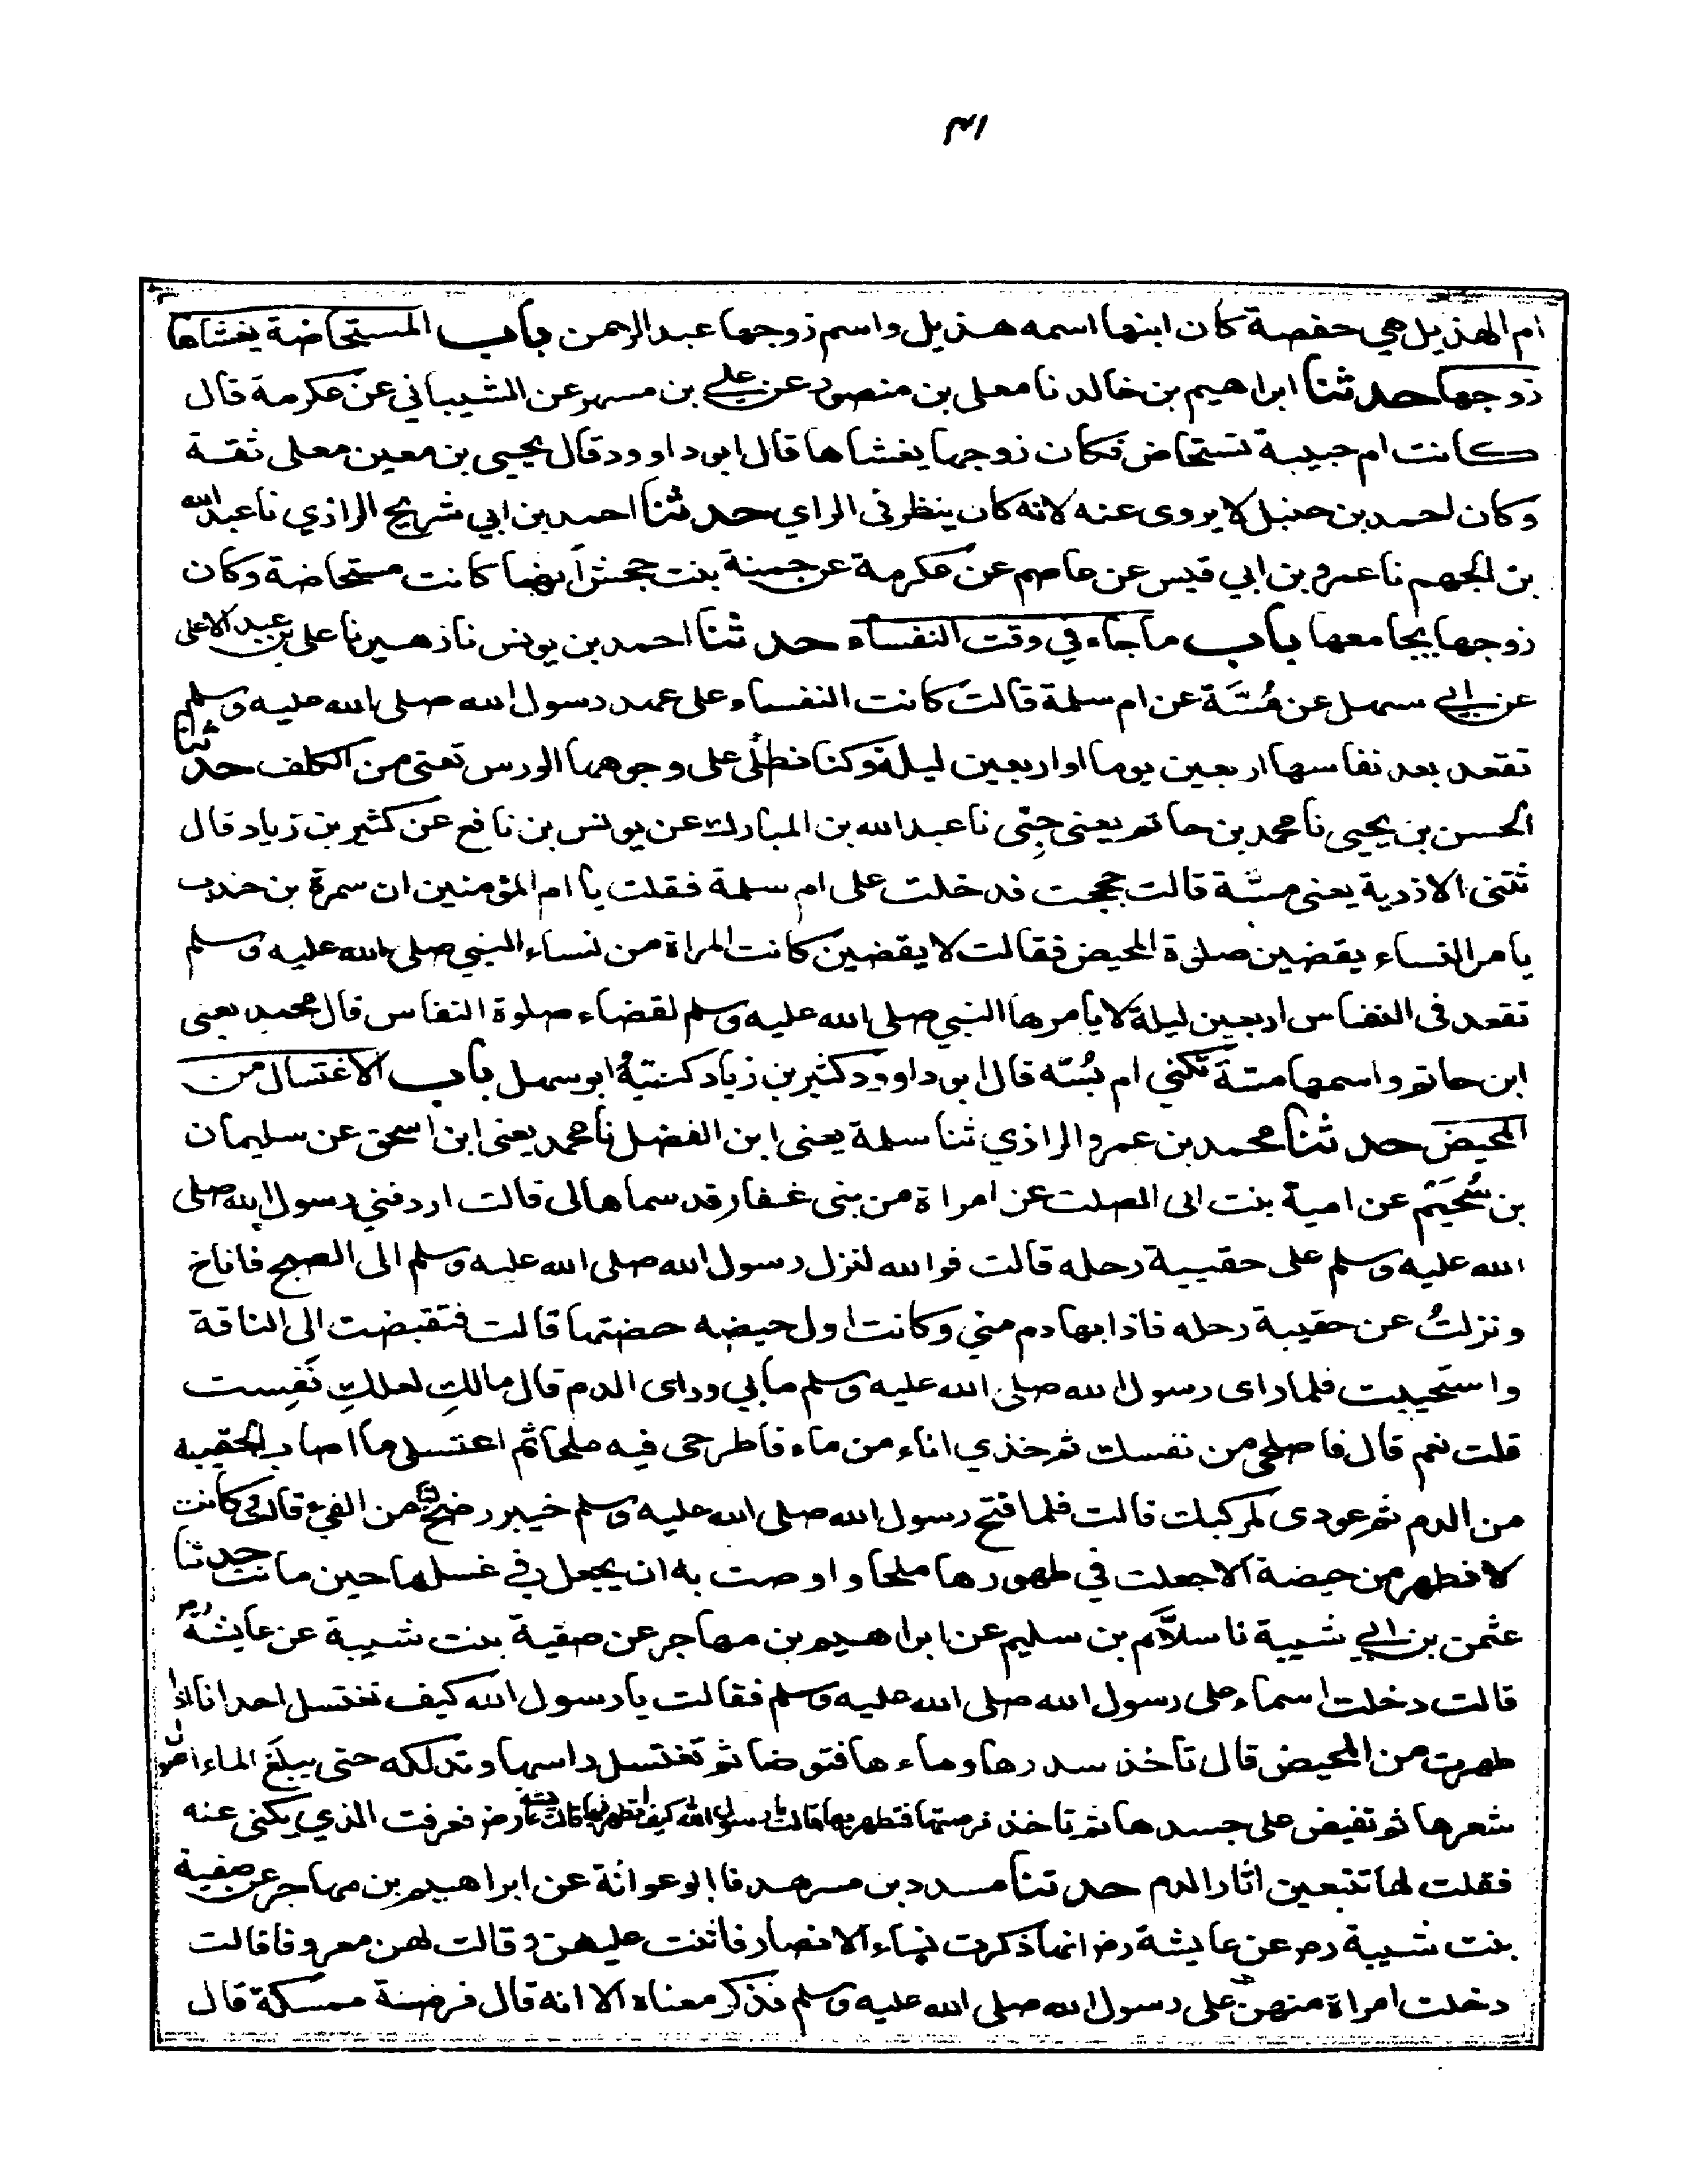 ٣١
ام الهذيل هي حفصة كان ابنها اسمه هذيل واسم زوجها عبد الرحمن باب المستحاضة يغشاها
زوجها حدثنا ابراهيم بن خالد نا معلى بن منصور عن علي بن مسهر عن الشيباني عن عكرمة قال
كانت ام حبيبة تستحاض فكان زوجها يغشاها قال ابو داوود قال يحيى بن معين معلى ثقة
وكان احمد بن حنبل لا يروى عنه لانه كان ينظر في الراي حدثنا احمد بن ابي شريح الرازي نا عبد الله
بن الجهم نا عمرو بن ابي قيس عن عاصم عن عكرمة عن حمنة بنت جحش انها كانت مستحاضة وكان
زوجها يجامعها باب ما جاء في وقت النفساء حدثنا احمد بن يونس نا زهير نا على بن عبد الاعلى
عن ابي سهل عن مُسَّة عن ام سلمة قالت كانت النفساء على عهد رسول الله صلى الله عليه وسلم
تقعد بعد نفاسها اربعين يوما او اربعين ليلة وكنا نطلى على وجوهنا الورس تعنى من الكلف حدثنا
الحسن بن يحيى نا محمد بن حاتم يعنى حِبّى نا عبد الله بن المبارك عن يونس بن نافع عن كثير بن زياد قال
ثتنى الازدية يعنى مسّة قالت حججت فدخلت على ام سلمة فقلت يا ام المؤمنين ان سمرة بن جندب
يامر النساء يقضين صلوة المحيض فقالت لا يقضين كانت المراة من نساء النبي صلى الله عليه وسلم
تقعد في النفاس اربعين ليلة لا يامرها النبي صلى الله عليه وسلم لقضاء صلوة النفاس قال محمد يعنى
ابن حاتم واسمها مسّة تكني ام بُسّه قال ابو داوود كثير بن زياد كنيتهُ ابو سهل باب الاغتسال من
المحيض حدثنا محمد بن عمرو الرازي ثنا سلمة يعنى ابن الفضل نا محمد يعنى ابن اسحق عن سليمان
بن سُحَيْم عن امية بنت ابى الصلت عن امراة من بنى غفار قد سماها لى قالت اردفني رسول الله صلى
الله عليه وسلم على حقيبة رحله قالت فوالله لنزل رسول الله صلى الله عليه وسلم الى الصبح فاناخ
ونزلتُ عن حقيبة رحله فاذا بها دم مني وكانت اول حيضه حضتها قالت فتقبضت الى الناقة
واستحييت فلما راى رسول الله صلى الله عليه وسلم ما بي وراى الدم قال مالكِ لعلكِ نَفِست
قلت نعم قال فاصلحى من نفسك ثم خذي اناء من ماء فاطرحى فيه ملحا ثم اغتسلى ما اصاب الحقيبه
من الدم ثم عودى لمركبك قالت فلما فتح رسول الله صلى الله عليه وسلم خيبر رضخ لنا من الفيء قالت وكانت
لا تطهر من حيضة الا جعلت في طهورها ملحا واوصت به ان يجعل في غسلها حين ماتت حدثنا
عثمن بن ابي شيبة نا سلاَّم بن سليم عن ابراهيم بن مهاجر عن صفية بنت شيبة عن عايشة رض
قالت دخلت اسماء على رسول الله صلى الله عليه وسلم فقالت يا رسول الله كيف تغتسل احدانا اذا
طهرت من المحيض قال تاخذ سدرها وماءها فتوضا ثم تغتسل راسها وتدلكه حتى يبلغ الماء اصول
شعرها ثم تفيض على جسدها ثم تاخذ فرصتها فتطهر بها قالت يا رسول الله كيف اتطهر بها قالت عايشه رض فعرفت الذي يكنى عنه
فقلت لها تتبعين اثار الدم حدثنا مسدد بن مسرهد نا ابو عوانة عن ابراهيم بن مهاجر عن صفية
بنت شيبة رض عن عايشة رض انها ذكرت نساء الانصار فاثنت عليهن وقالت لهن معروفا قالت
دخلت امراة منهن على رسول الله صلى الله عليه وسلم فذكر معناه الا انه قال فرصة ممسكة قال